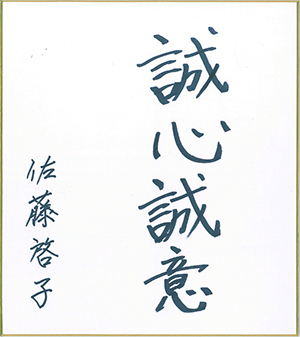 誠心誠意
佐藤啓子